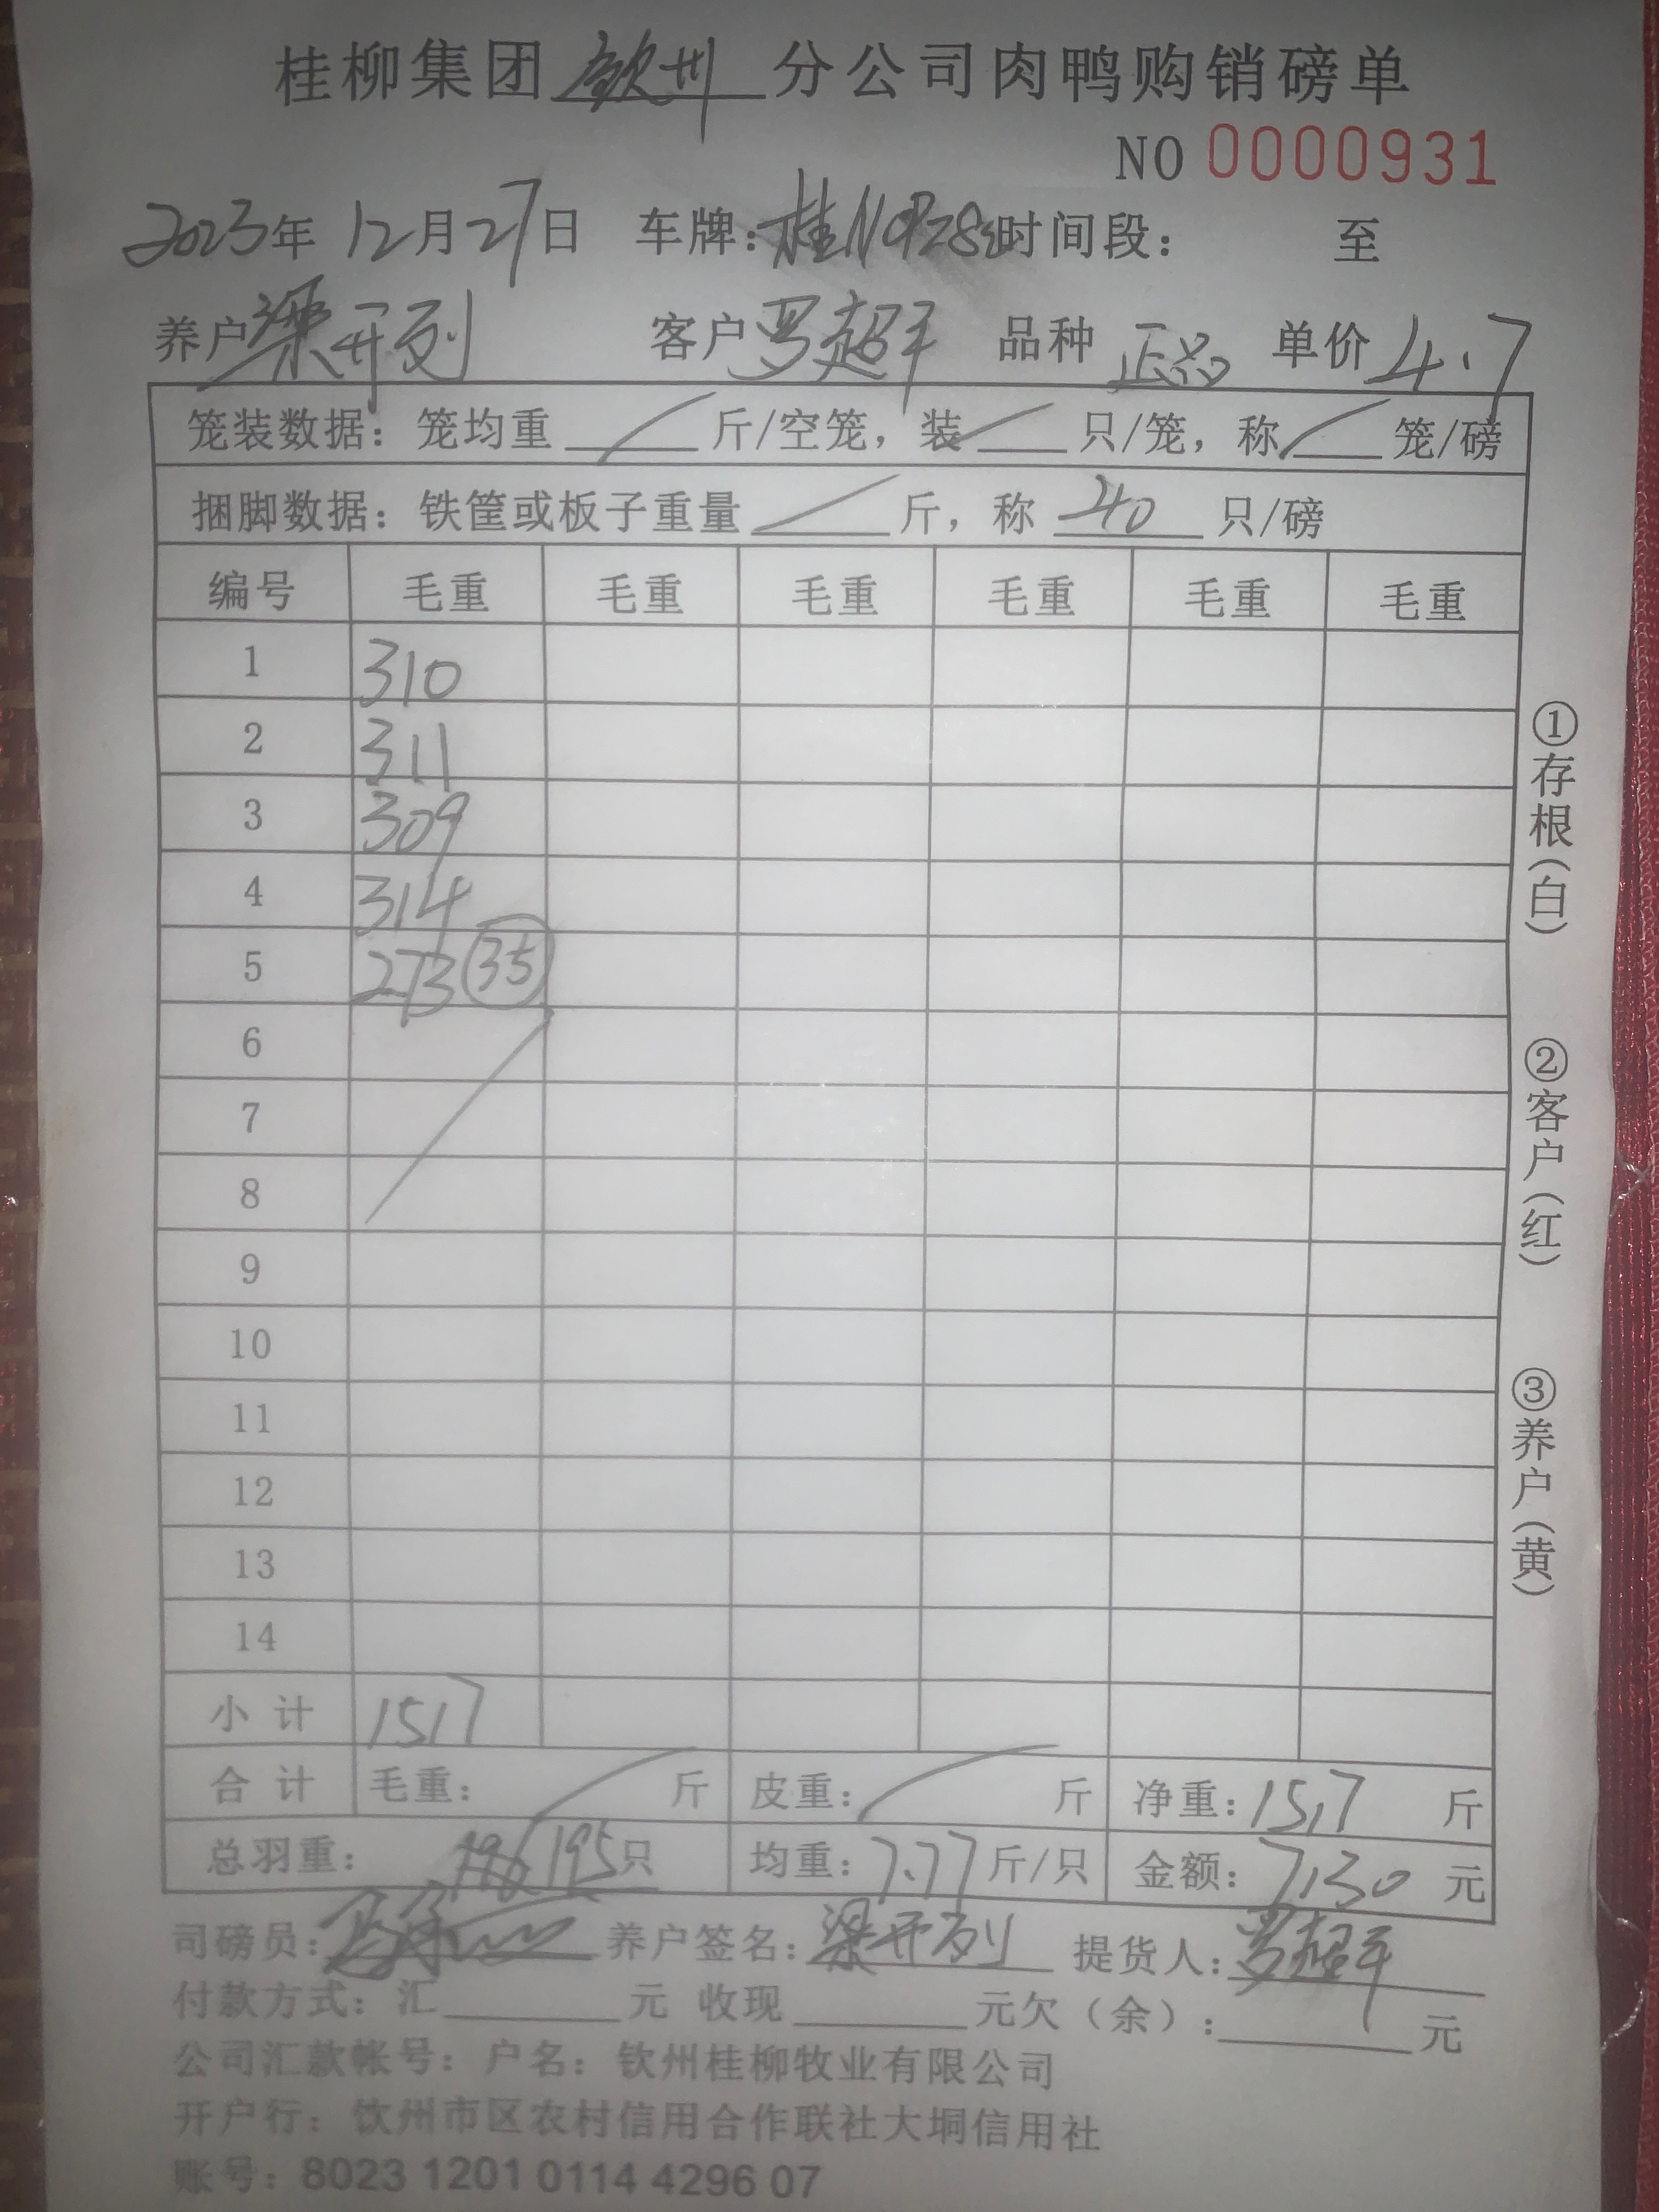 桂柳集团 钦州 分公司肉鸭购销磅单
NO 0000931
2023年 12月27日 车牌:桂N 时间段: 至
养户 梁开列 客户 罗超平 品种 正品 单价 4.7
笼装数据: 笼均重 / 斤/空笼, 装 / 只/笼, 称 / 笼/磅
捆脚数据: 铁筐或板子重量 / 斤, 称 40 只/磅
编号 毛重 毛重 毛重 毛重 毛重 毛重
1 310
2 311
3 309
4 314
5 273 35
6
7
8
9
10
11
12
13
14
小 计 1517
合 计 毛重: / 斤 皮重: / 斤 净重: 1517 斤
总羽重: 195只 均重: 7.77 斤/只 金额: 7130 元
司磅员: 养户签名: 梁开列 提货人: 罗超平
付款方式: 汇 元 收现 元欠(余): 元
公司汇款帐号: 户名: 钦州桂柳牧业有限公司
开户行: 钦州市区农村信用合作联社大垌信用社
账号: 8023 1201 0114 4296 07
①存根(白)
②客户(红)
③养户(黄)